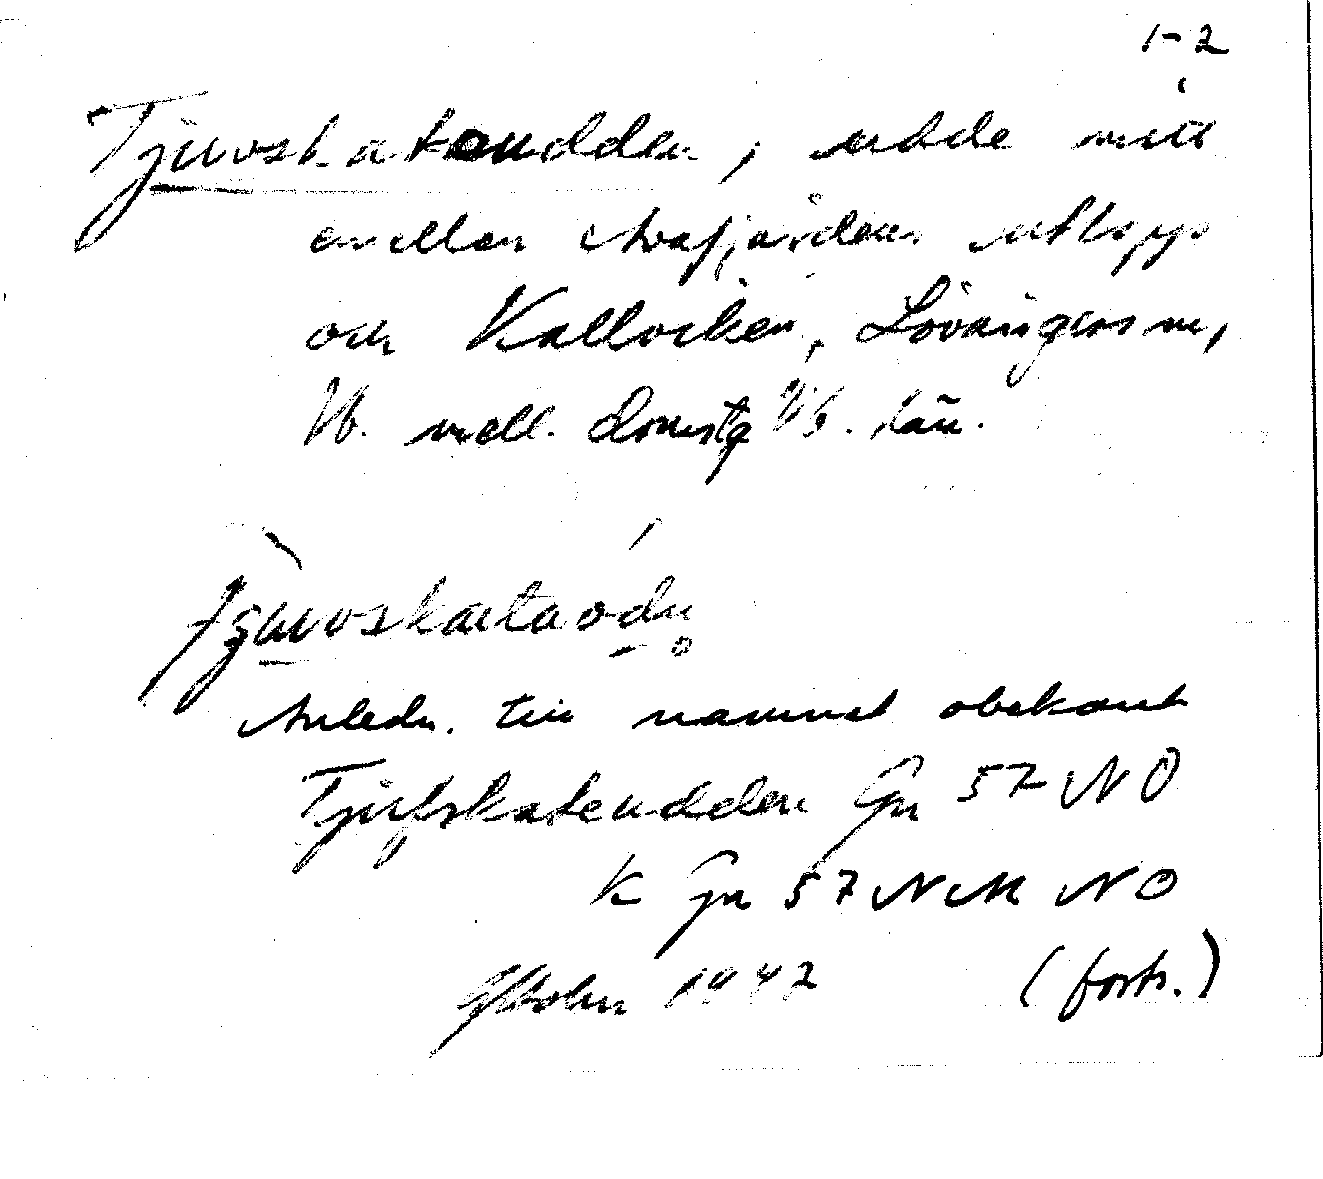 1-2
Tjuvskatoudden, udde mitt
emellan Avafjärdens utlopp
och Kallviken, Lövångers sn,
Vb. mell. domsg Vb. län.
Anledn. till namnet obekant
Tjufskatudden Gn 57 NO
K Gn 57 NM NO
1942 (forts.)